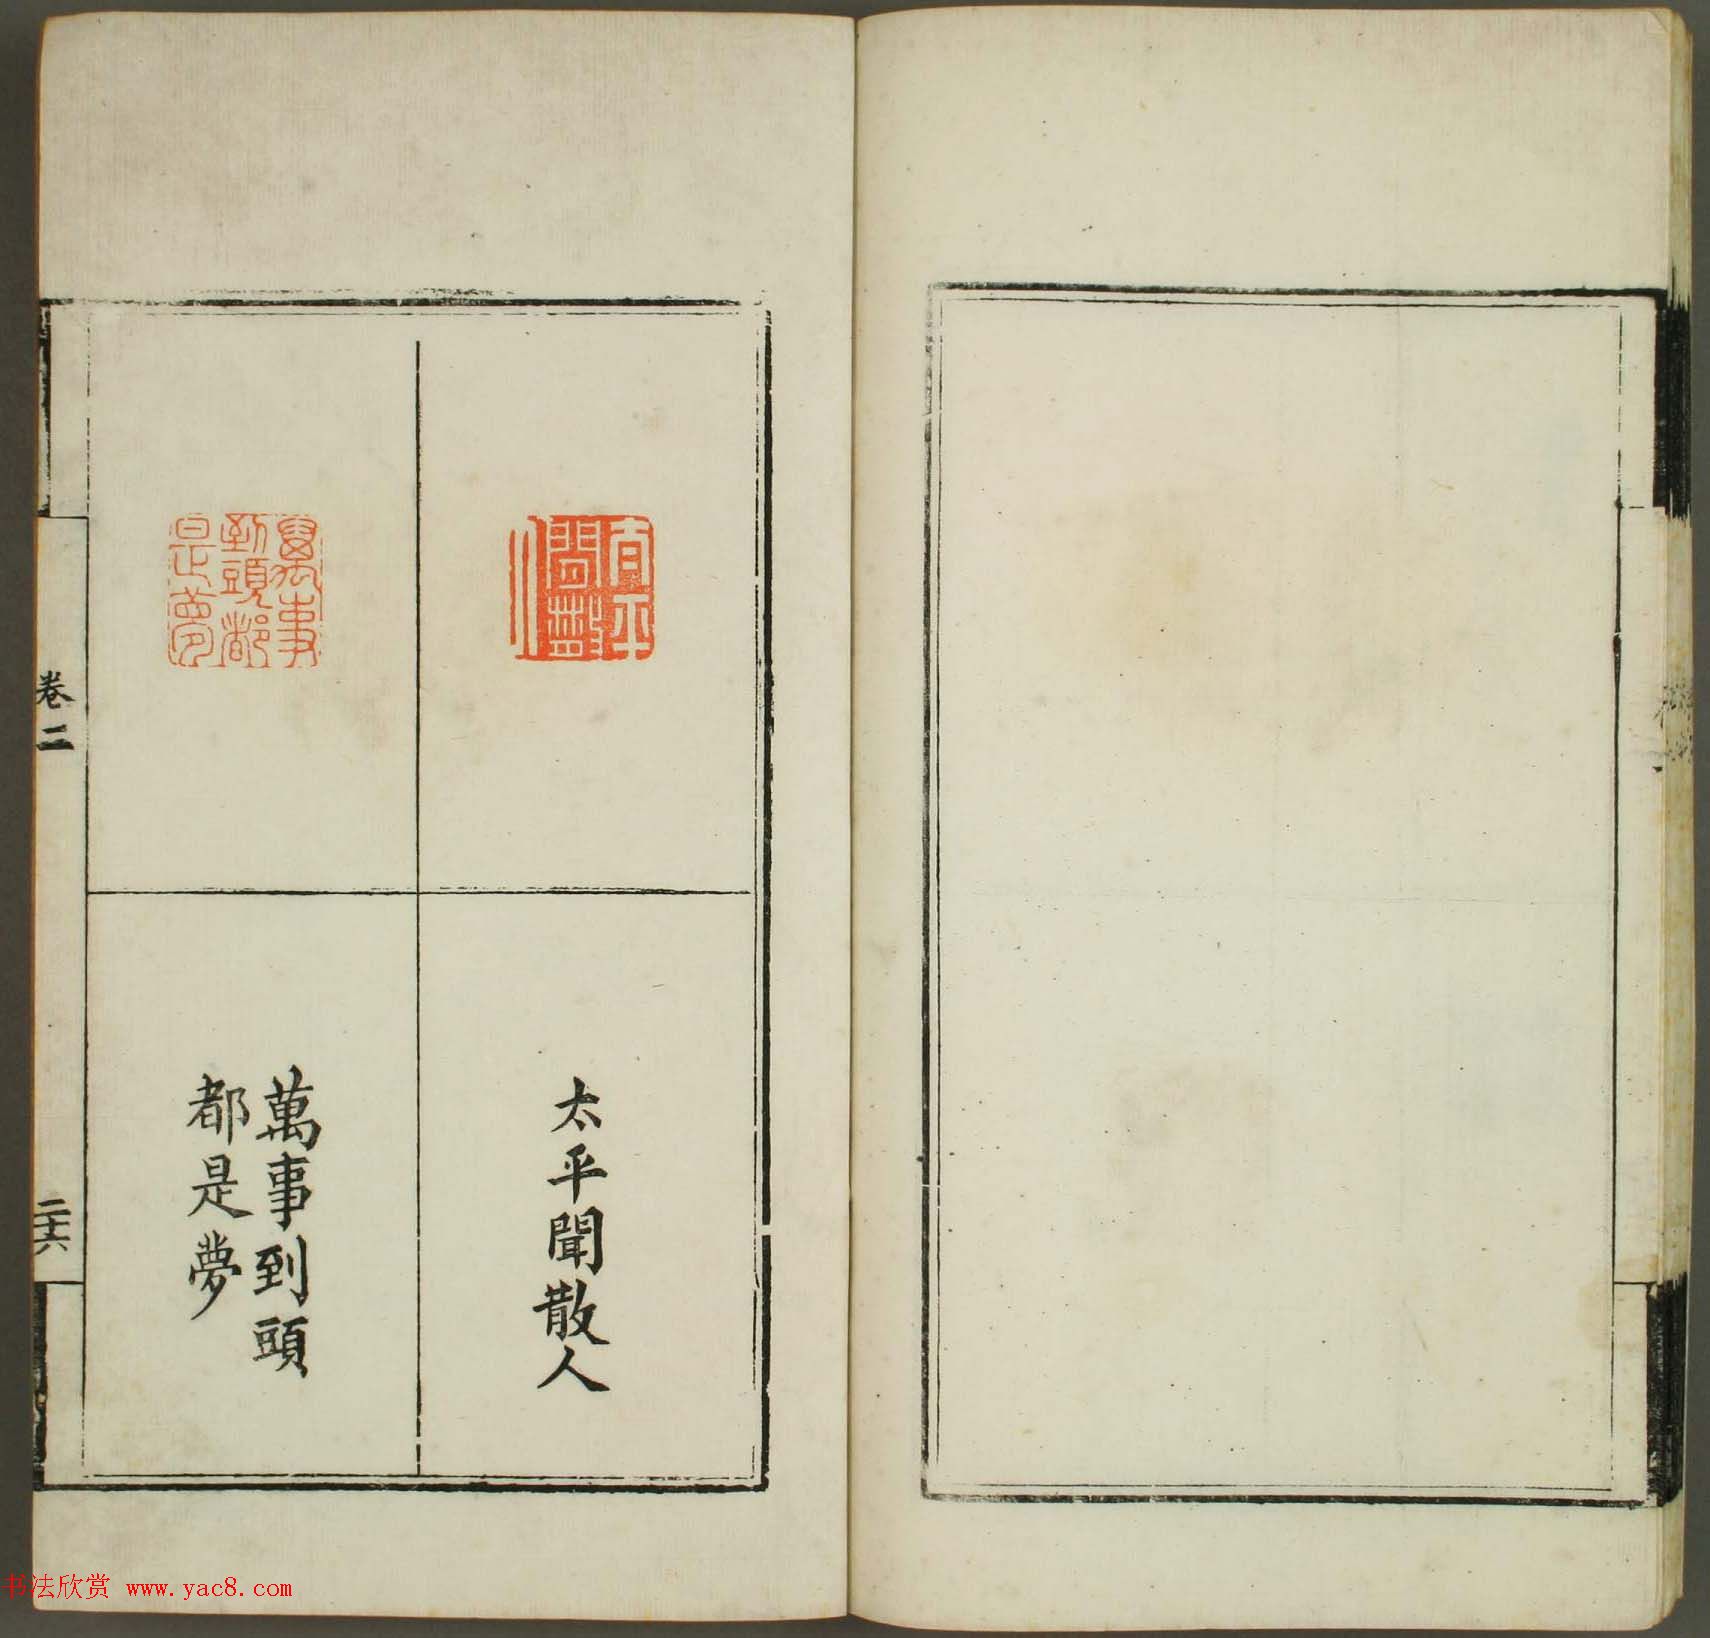 太平聞散人
萬事到頭
都是夢
萬事到頭都是夢
卷二
二十六
书法欣赏 www.yac8.com